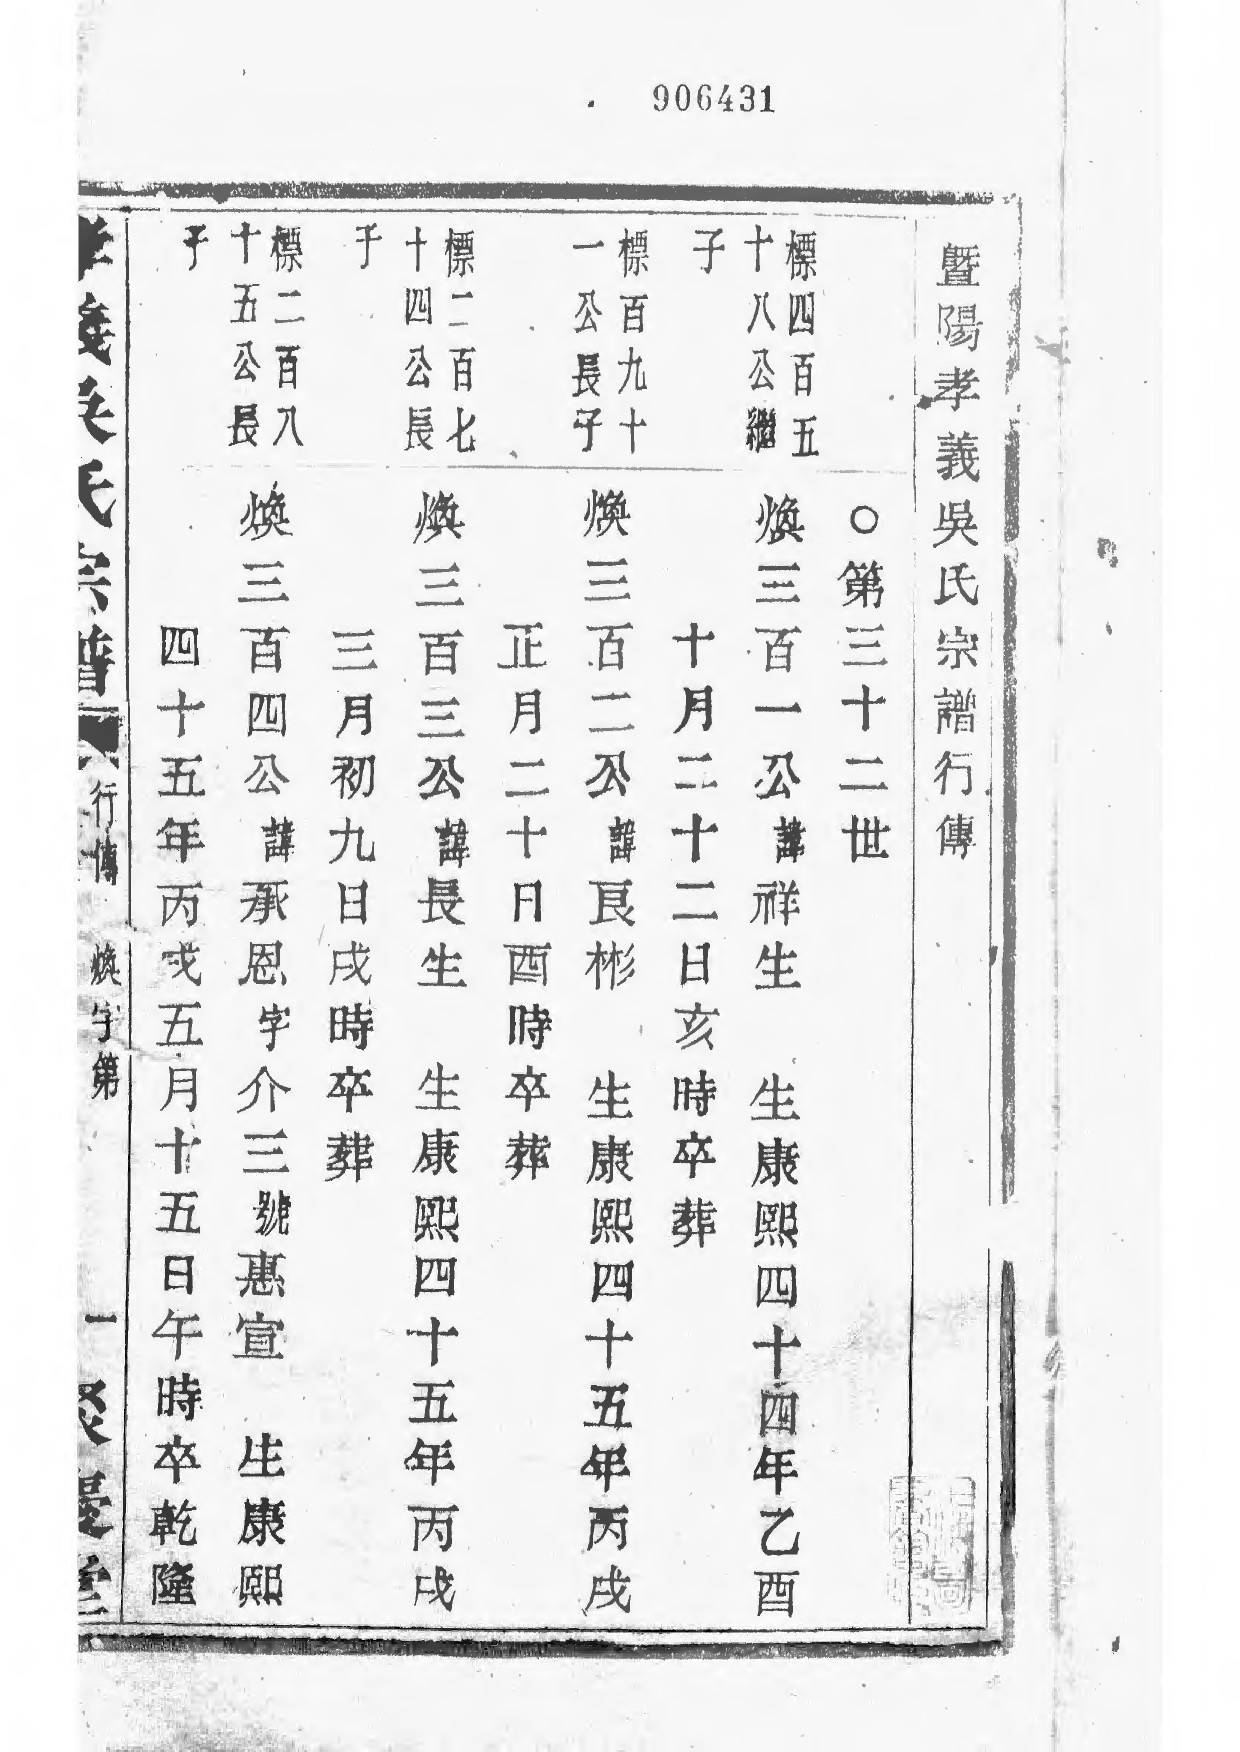 906431
暨陽孝義吳氏宗譜行傳
○第三十二世
標四百五
十八公繼
子
煥三百一公諱祥生　生康熙四十四年乙酉
十月二十二日亥時卒葬
標百九十
一公長子
煥三百二公諱良彬　生康熙四十五年丙戌
正月二十日酉時卒葬
標二百七
十四公長
子
煥三百三公諱長生　生康熙四十五年丙戌
三月初九日戌時卒葬
標二百八
十五公長
子
煥三百四公諱承恩字介三號惠宣　生康熙
四十五年丙戌五月十五日午時卒乾隆
孝義吳氏宗譜
行傳　煥字第　一
聚慶堂